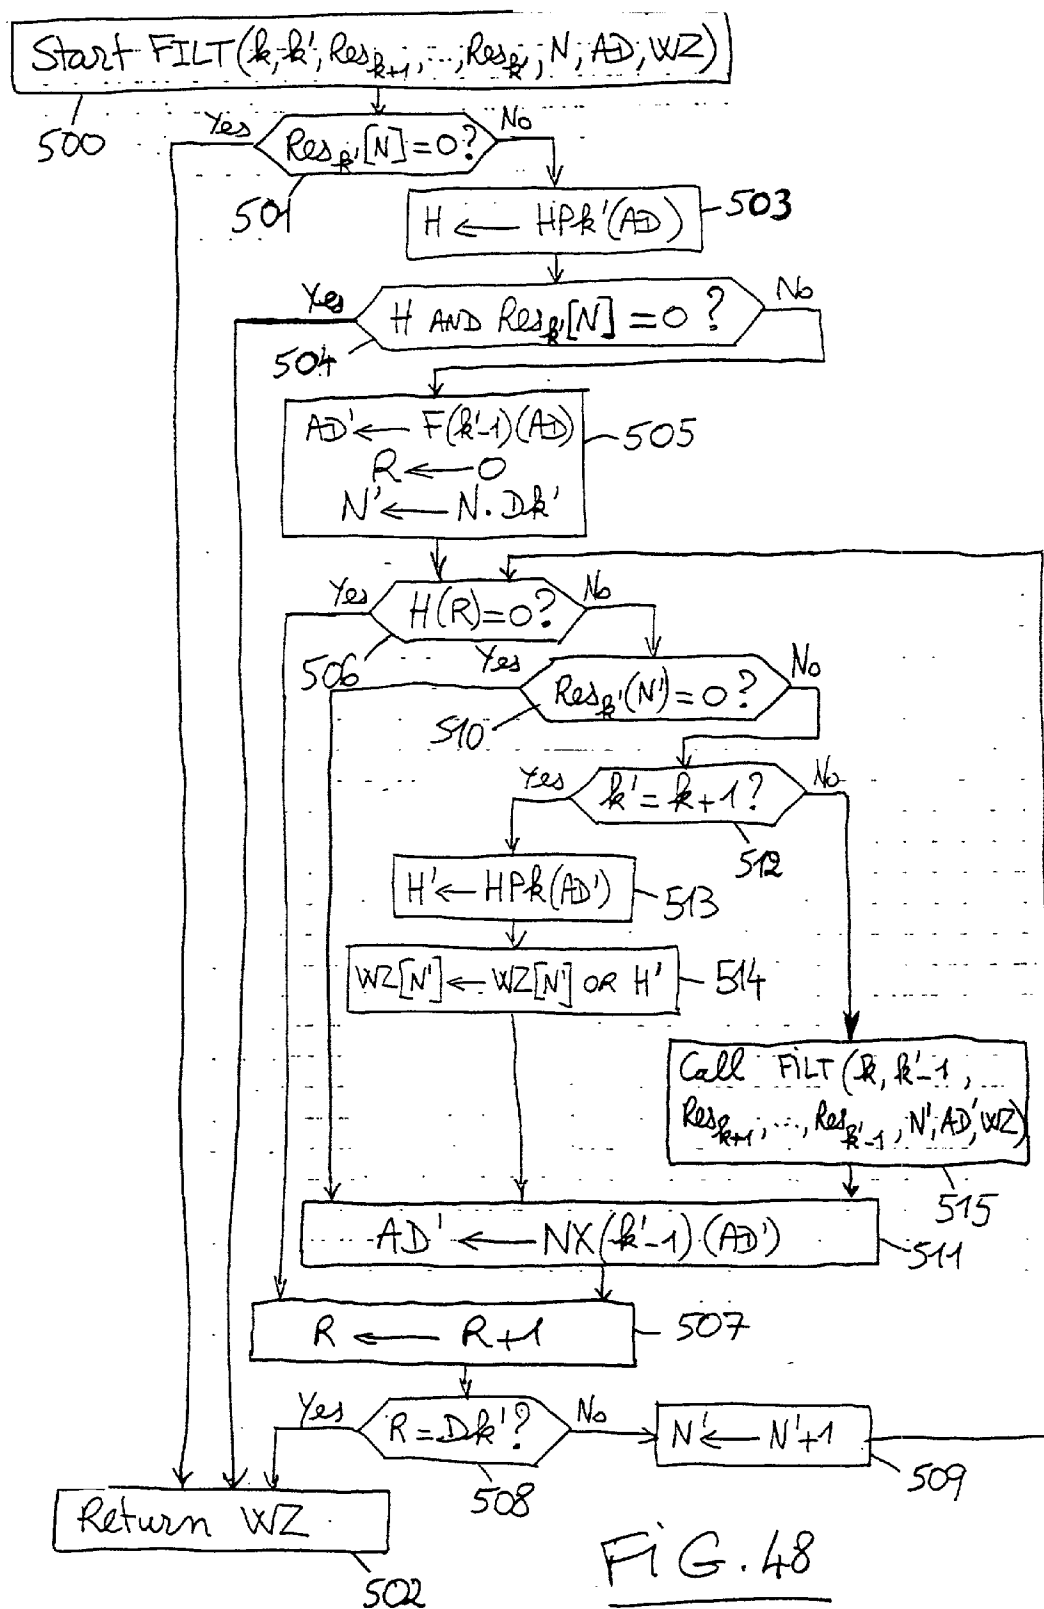 Start FILT(k, k', Res_{k+1}, ..., Res_{k'}, N, AD, WZ)
500
Yes
Res_{k'}[N]=0?
No
501
H ← HPk'(AD)
503
Yes
H AND Res_{k'}[N] = 0 ?
No
504
AD' ← F(k'-1)(AD)
R ← 0
N' ← N.Dk'
505
Yes
H(R)=0?
No
506
Yes
Res_{k'}(N')=0?
No
510
Yes
k'=k+1?
No
512
H' ← HPk(AD')
513
WZ[N'] ← WZ[N'] OR H'
514
Call FILT(k, k'-1,
Res_{k+1}, ..., Res_{k'-1}, N', AD', WZ)
515
AD' ← NX(k'-1)(AD')
511
R ← R+1
507
Yes
R=Dk'?
No
508
N' ← N'+1
509
Return WZ
502
FiG.48